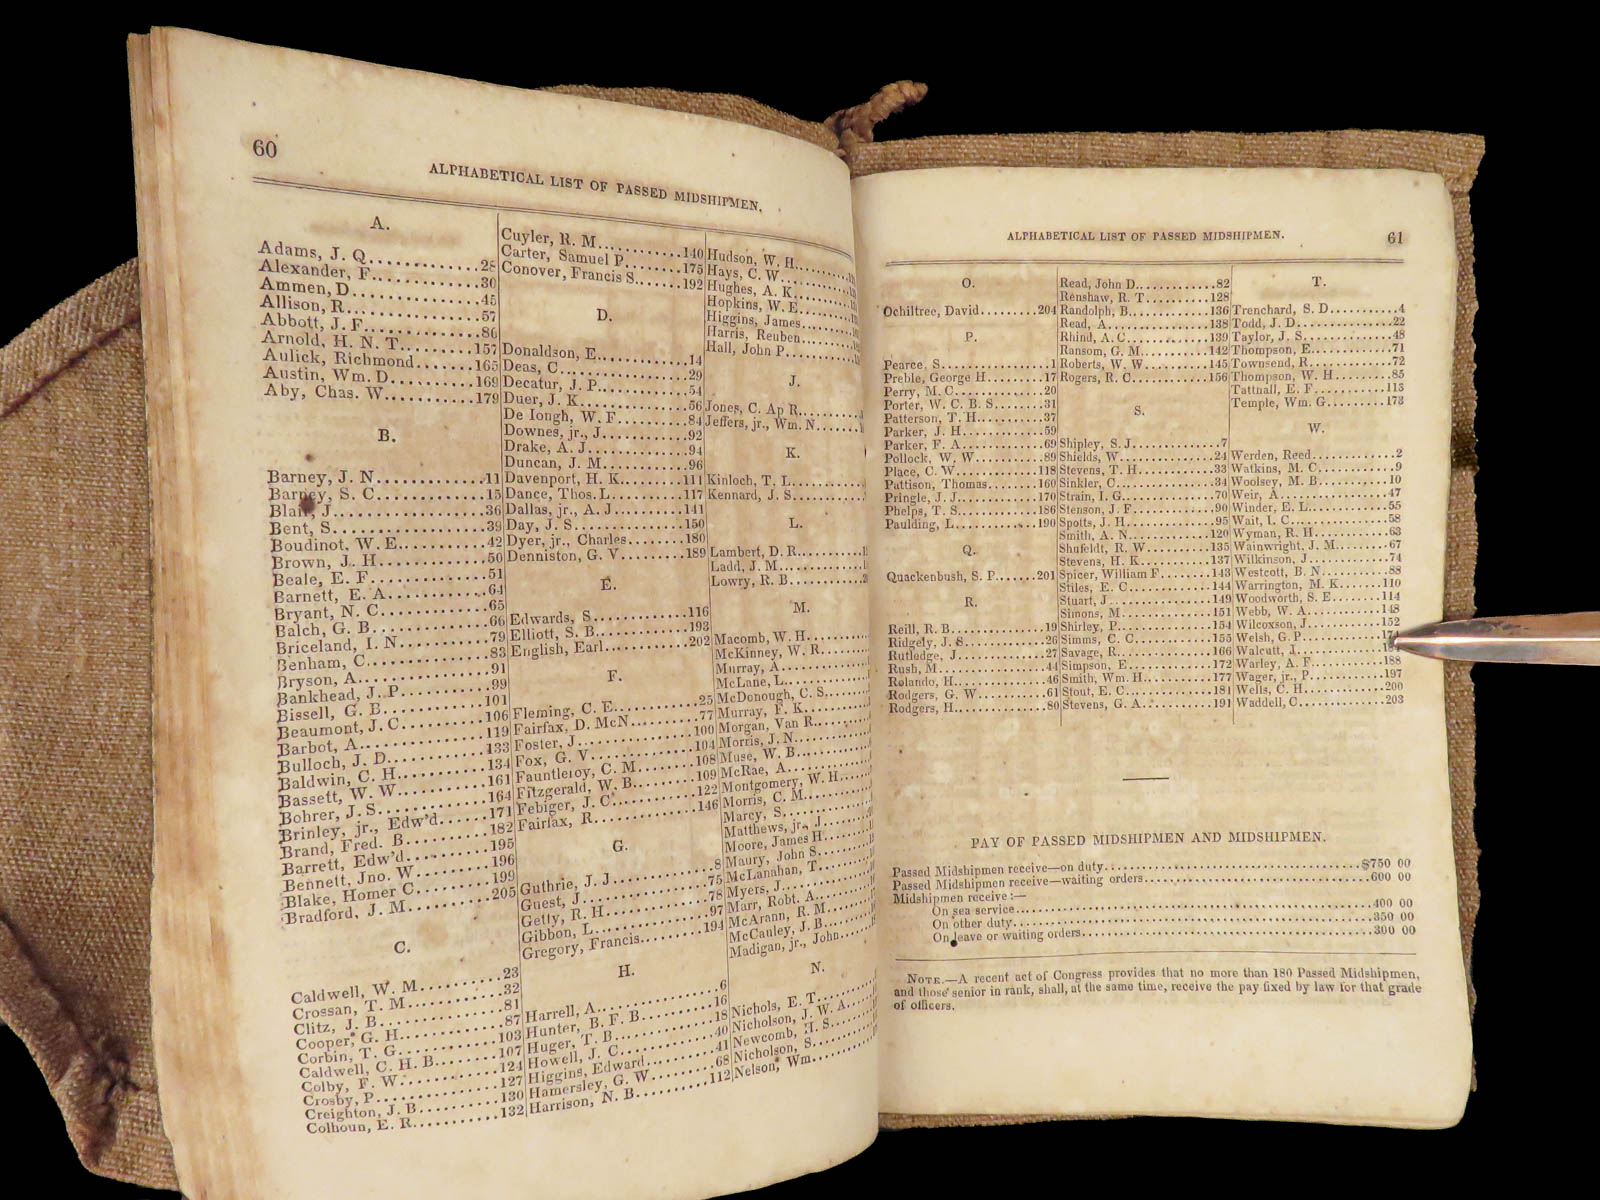 60
ALPHABETICAL LIST OF PASSED MIDSHIPMEN.
A.
Adams, J. Q. 28
Alexander, F. 30
Ammen, D. 45
Allison, R. 57
Abbott, J. F. 86
Arnold, H. N. T. 157
Aulick, Richmond 165
Austin, Wm. D. 169
Aby, Chas. W. 179
B.
Barney, J. N. 11
Barney, S. C. 15
Blair, J. 36
Bent, S. 39
Boudinot, W. E. 42
Brown, J. H. 50
Beale, E. F. 51
Barnett, E. A. 64
Bryant, N. C. 65
Balch, G. B. 66
Briceland, I. N. 79
Benham, C. 83
Bryson, A. 91
Bankhead, J. P. 99
Bissell, G. B. 101
Beaumont, J. C. 106
Barbot, A. 119
Bulloch, J. D. 133
Baldwin, C. H. 134
Bassett, W. W. 161
Bohrer, J. S. 164
Brinley, jr., Edw'd. 171
Brand, Fred. B. 182
Barrett, Edw'd. 195
Bennett, Jno. W. 196
Blake, Homer C. 199
Bradford, J. M. 205
C.
Caldwell, W. M. 23
Crossan, T. M. 32
Clitz, J. B. 81
Cooper, G. H. 87
Corbin, T. G. 103
Caldwell, C. H. B. 107
Colby, F. W. 124
Crosby, P. 127
Creighton, J. B. 130
Colhoun, E. R. 132
Cuyler, R. M. 140
Carter, Samuel P. 175
Conover, Francis S. 192
D.
Donaldson, E. 14
Deas, C. 29
Decatur, J. P. 54
Duer, J. K. 56
De Iongh, W. F. 84
Downes, jr., J. 92
Drake, A. J. 94
Duncan, J. M. 96
Davenport, H. K. 111
Dance, Thos. L. 117
Dallas, jr., A. J. 141
Day, J. S. 150
Dyer, jr., Charles 180
Denniston, G. V. 189
E.
Edwards, S. 116
Elliott, S. B. 193
English, Earl 202
F.
Fleming, C. E. 25
Fairfax, D. McN. 77
Foster, J. 100
Fox, G. V. 104
Fauntleroy, C. M. 108
Fitzgerald, W. B. 109
Febiger, J. C. 122
Fairfax, R. 146
G.
Guthrie, J. J. 8
Guest, J. 75
Getty, R. H. 78
Gibbon, L. 97
Gregory, Francis 194
H.
Harrell, A. 6
Hunter, B. F. B. 16
Huger, T. B. 18
Howell, J. C. 40
Higgins, Edward 41
Hamersley, G. W. 68
Harrison, N. B. 112
Hudson, W. H.
Hays, C. W.
Hughes, A. K.
Hopkins, W. E.
Higgins, James
Harris, Reuben
Hall, John P.
J.
Jones, C. Ap R.
Jeffers, jr., Wm. N.
K.
Kinloch, T. L.
Kennard, J. S.
L.
Lambert, D. R.
Ladd, J. M.
Lowry, R. B.
M.
Macomb, W. H.
McKinney, W. R.
Murray, A.
McLane, L.
McDonough, C. S.
Murray, F. K.
Morgan, Van R.
Morris, J. N.
Muse, W. B.
McRae, A.
Montgomery, W. H.
Morris, C. M.
Marcy, S.
Matthews, jr., J.
Moore, James H.
Maury, John S.
McLanahan, T.
Myers, J.
Marr, Robt. A.
McArann, R. M.
McCauley, J. B.
Madigan, jr., John
N.
Nichols, E. T.
Nicholson, J. W. A.
Newcomb, H. S.
Nicholson, S.
Nelson, Wm.
ALPHABETICAL LIST OF PASSED MIDSHIPMEN.
61
O.
Ochiltree, David 204
P.
Pearce, S. 1
Preble, George H. 17
Perry, M. C. 20
Porter, W. C. B. S. 31
Patterson, T. H. 37
Parker, J. H. 59
Parker, F. A. 69
Pollock, W. W. 89
Place, C. W. 118
Pattison, Thomas 160
Pringle, J. J. 170
Phelps, T. S. 186
Paulding, L. 190
Q.
Quackenbush, S. P. 201
R.
Reill, R. B. 19
Ridgely, J. S. 26
Rutledge, J. 27
Rush, M. 44
Rolando, H. 46
Rodgers, G. W. 61
Rodgers, H. 80
Read, John D. 82
Renshaw, R. T. 128
Randolph, B. 136
Read, A. 138
Rhind, A. C. 139
Ransom, G. M. 142
Roberts, W. W. 145
Rogers, R. C. 156
S.
Shipley, S. J. 7
Shields, W. 24
Stevens, T. H. 33
Sinkler, C. 34
Strain, I. G. 70
Stenson, J. F. 90
Spotts, J. H. 95
Smith, A. N. 120
Shufeldt, R. W. 135
Stevens, H. K. 137
Spicer, William F. 143
Stiles, E. C. 144
Stuart, J. 149
Simons, M. 151
Shirley, P. 154
Simms, C. C. 155
Savage, R. 166
Simpson, E. 172
Smith, Wm. H. 177
Stout, E. C. 181
Stevens, G. A. 191
T.
Trenchard, S. D. 4
Todd, J. D. 22
Taylor, J. S. 48
Thompson, E. 71
Townsend, R. 72
Thompson, W. H. 85
Tattnall, E. F. 113
Temple, Wm. G. 173
W.
Werden, Reed 2
Watkins, M. C. 9
Woolsey, M. B. 10
Weir, A. 47
Winder, E. L. 55
Wait, I. C. 58
Wyman, R. H. 63
Wainwright, J. M. 67
Wilkinson, J. 74
Westcott, B. N. 88
Warrington, M. K. 110
Woodworth, S. E. 114
Webb, W. A. 148
Wilcoxson, J. 152
Welsh, G. P.
Walcutt, J.
Warley, A. F. 188
Wager, jr., P. 197
Wells, C. H. 200
Waddell, C. 203
PAY OF PASSED MIDSHIPMEN AND MIDSHIPMEN.
Passed Midshipmen receive—on duty $750 00
Passed Midshipmen receive—waiting orders 600 00
Midshipmen receive:—
On sea service 400 00
On other duty 350 00
On leave or waiting orders 300 00
NOTE.—A recent act of Congress provides that no more than 180 Passed Midshipmen,
and those senior in rank, shall, at the same time, receive the pay fixed by law for that grade
of officers.